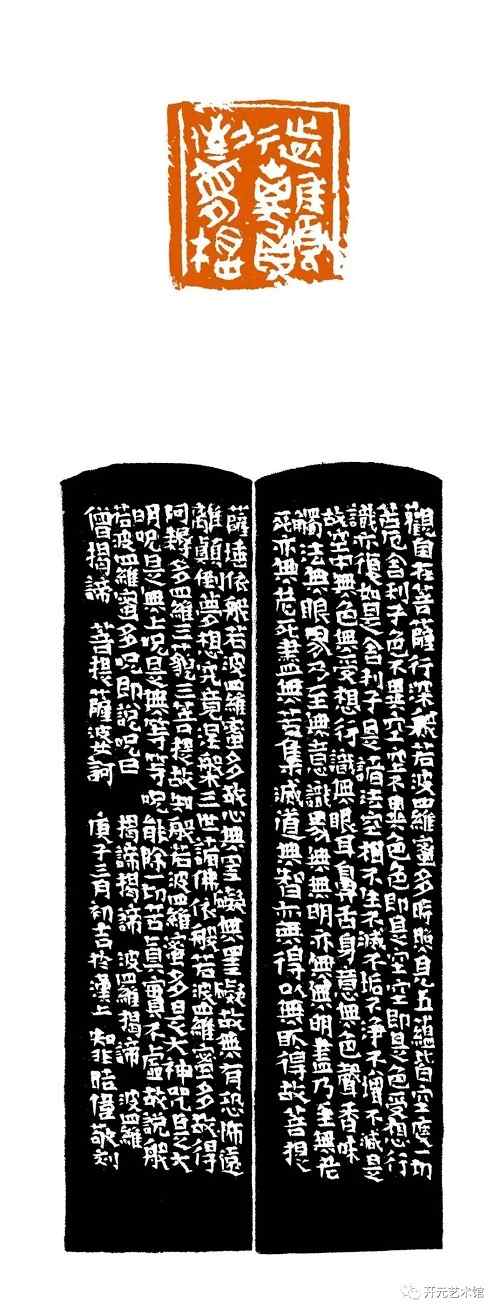 觀自在菩薩行深般若波羅蜜多時照見五蘊皆空度一切
苦厄舍利子色不異空空不異色色即是空空即是色受想行
識亦復如是舍利子是諸法空相不生不滅不垢不淨不增不減是
故空中無色無受想行識無眼耳鼻舌身意無色聲香味
觸法無眼界乃至無意識界無無明亦無無明盡乃至無老
死亦無老死盡無苦集滅道無智亦無得以無所得故菩提
薩埵依般若波羅蜜多故心無罣礙無罣礙故無有恐怖遠
離顛倒夢想究竟涅槃三世諸佛依般若波羅蜜多故得
阿耨多羅三藐三菩提故知般若波羅蜜多是大神咒是大
明咒是無上咒是無等等咒能除一切苦真實不虛故說般
若波羅蜜多咒即說咒曰 揭諦揭諦 波羅揭諦 波羅
僧揭諦 菩提薩婆訶 庚子三月初吉於漢上 敬刻
开元艺术馆